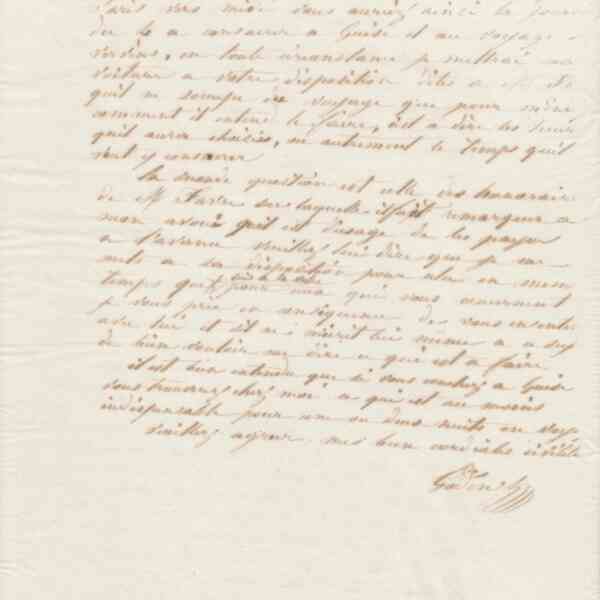 Paris vers midi vous auriez ainsi le jour
du 10 a consacrer a Guise et au voyage
vervins, en toute circonstance je mettrai ma
voiture a votre disposition dites a M
quil ne soccupe du voyage que pour même
comment il entend le faire, est a dire les jours
quil aura choisis, ou autrement le temps quil
veut y consacrer
la seconde question est celle des honoraires
de M Favre sur laquelle il fait remarquer a
mon avoué quil est dusage de les payer
a lavance veuillez lui dire que je me
mets a sa disposition pour cela en meme
temps que pour ceux qui vous concernent
je vous prie en conséquence de vous entendre
avec lui et sil ne mécrit lui même a ce sujet
de bien vouloir me dire ce qui est a faire
il est bien entendu que si vous couchez a Guise
vous trouverez chez moi ce qui est au moins
indispensable pour une ou deux nuits en voyage
Veuillez agréer mes bien cordiales civilités
Godin